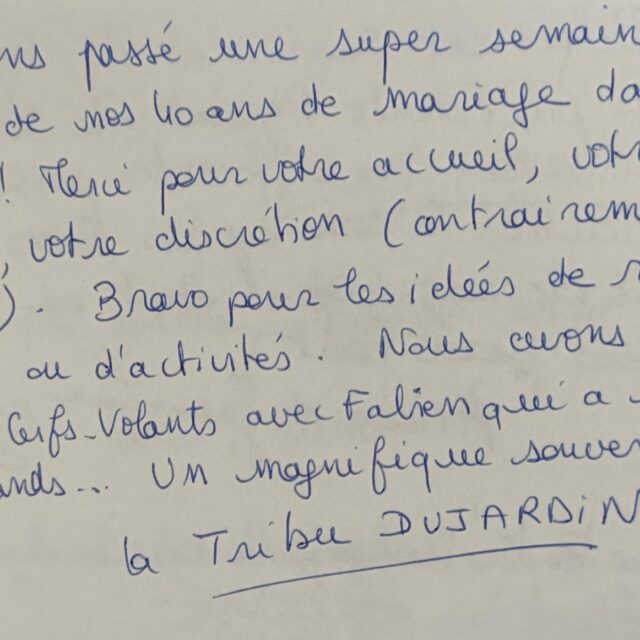 ns passé une super semain
de nos 40 ans de mariage da
! Merci pour votre accueil, votr
, votre discrétion (contrairem
). Bravo pour les idées de r
ou d'activités. Nous avons
Cerfs-Volants avec Fabien qui a
ands... Un magnifique souven
la Tribu DUJARDIN